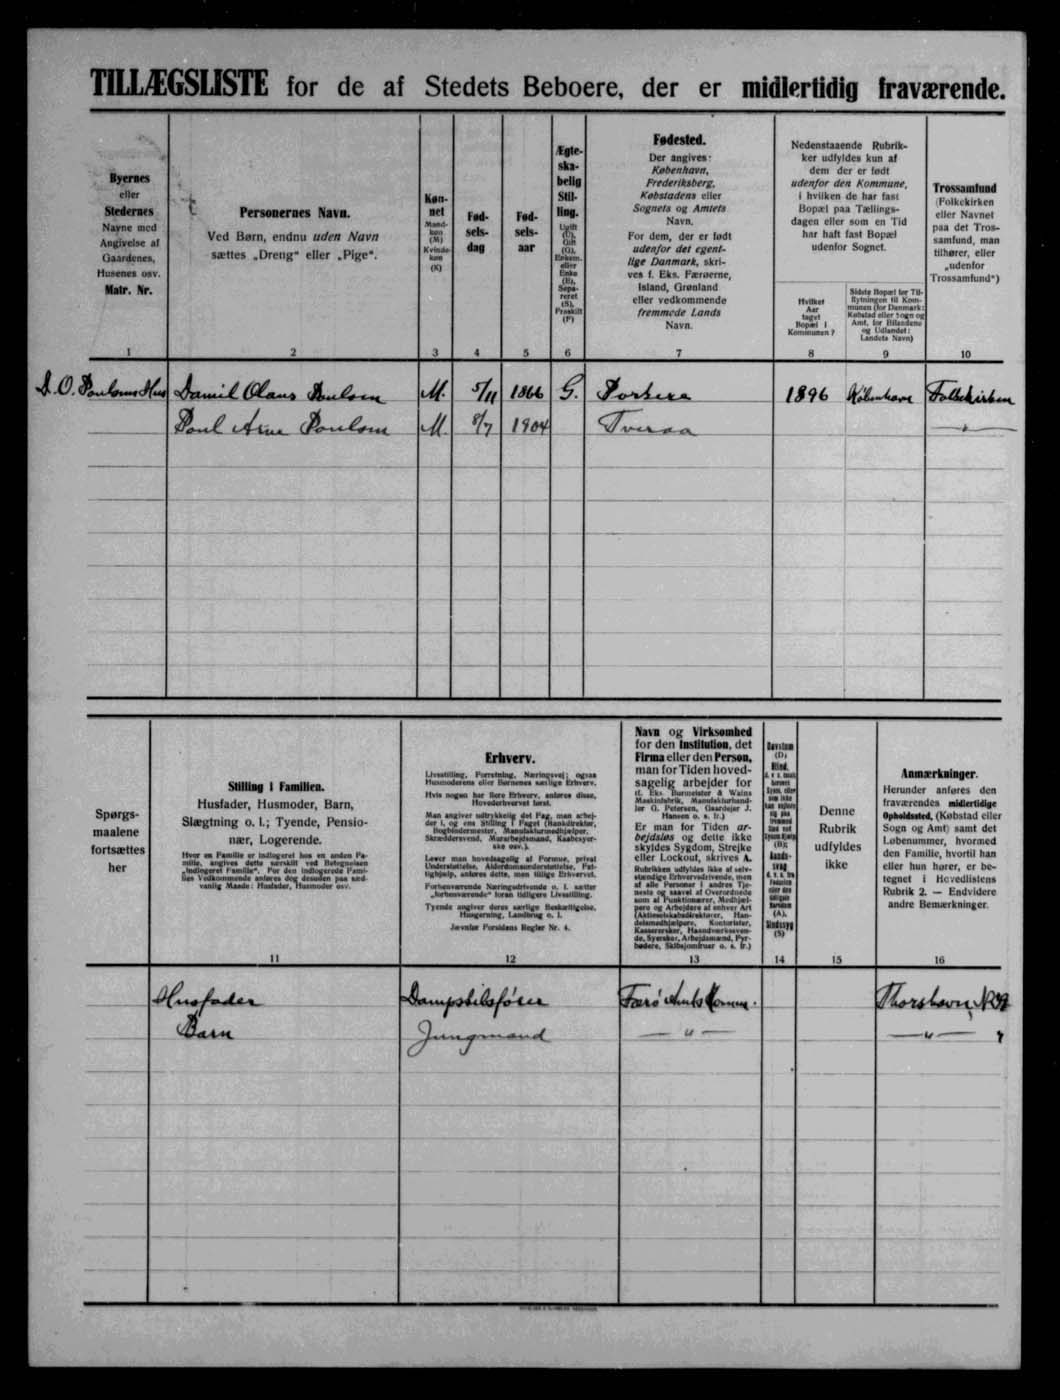 TILLÆGSLISTE for de af Stedets Beboere, der er midlertidig fraværende.
Byernes
eller
Stedernes
Navne med
Angivelse af
Gaardenes,
Husenes osv.
Matr. Nr.
1
Personernes Navn.
Ved Børn, endnu uden Navn
sættes „Dreng“ eller „Pige“.
2
Køn-
net
Mand-
køn
(M)
Kvinde-
køn
(K)
3
Fød-
sels-
dag
4
Fød-
sels-
aar
5
Ægte-
ska-
belig
Stil-
ling.
Ugift
(U),
Gift
(G),
Enkem.
eller
Enke
(E),
Sepa-
reret
(S),
Fraskilt
(F)
6
Fødested.
Der angives:
København,
Frederiksberg,
Købstadens eller
Sognets og Amtets
Navn.
For dem, der er født
udenfor det egent-
lige Danmark, skri-
ves f. Eks. Færøerne,
Island, Grønland
eller vedkommende
fremmede Lands
Navn.
7
Nedenstaaende Rubrik-
ker udfyldes kun af
dem der er født
udenfor den Kommune,
i hvilken de har fast
Bopæl paa Tællings-
dagen eller som en Tid
har haft fast Bopæl
udenfor Sognet.
Hvilket
Aar
taget
Bopæl i
Kommunen?
8
Sidste Bopæl før Til-
flytningen til Kom-
munen (for Danmark:
Købstad eller Sogn og
Amt, for Bilandene
og Udlandet:
Landets Navn)
9
Trossamfund
(Folkekirken
eller Navnet
paa det Tros-
samfund, man
tilhører, eller
„udenfor
Trossamfund“)
10
D. O. Poulsens Hus Daniel Olaus Poulsen M. 5/11 1866 G. Porkere 1896 København Folkekirken
Poul Arne Poulsen M 8/7 1904 Tveraa — " —
Spørgs-
maalene
fortsættes
her
Stilling i Familien.
Husfader, Husmoder, Barn,
Slægtning o. l.; Tyende, Pensio-
nær, Logerende.
Hvor en Familie er indlogeret hos en anden Fa-
milie, angives dette særskilt ved Betegnelsen
„indlogeret Familie“. For den indlogerede Fami-
lies Vedkommende anføres dog desuden paa sæd-
vanlig Maade: Husfader, Husmoder osv.
11
Erhverv.
Livsstilling, Forretning, Næringsvej; ogsaa
Husmoderens eller Børnenes særlige Erhverv.
Hvis nogen har flere Erhverv, anføres disse,
Hovederhvervet først.
Man angiver udtrykkelig det Fag, man arbej-
der i, og ens Stilling i Faget (Bankdirektør,
Bogbindermester, Manufakturmedhjælper,
Skræddersvend, Murarbejdsmand, Kaabesyer-
ske osv.).
Lever man hovedsagelig af Formue, privat
Understøttelse, Alderdomsunderstøttelse, Fat-
tighjælp, anføres dette, men tillige Erhvervet.
Forhenværende Næringsdrivende o. l. sætter
„forhenværende“ foran tidligere Livsstilling.
Tyende angiver deres særlige Beskæftigelse,
Husgerning, Landbrug o. l.
Jævnfør Forsidens Regler Nr. 4.
12
Navn og Virksomhed
for den Institution, det
Firma eller den Person,
man for Tiden hoved-
sagelig arbejder for
(f. Eks. Burmeister & Wains
Maskinfabrik, Manufakturhand-
ler G. Petersen, Gaardejer J.
Hansen o. s. fr.)
Er man for Tiden ar-
bejdsløs og dette ikke
skyldes Sygdom, Strejke
eller Lockout, skrives A.
Rubrikken udfyldes ikke af selv-
stændige Erhvervsdrivende, men
af alle Personer i andres Tje-
neste og saavel af Overordnede
som af Funktionærer, Medhjæl-
pere og Arbejdere af enhver Art
(Aktieselskabsdirektører, Han-
delsmedhjælpere, Kontorister,
Kasserersker, Haandværkssven-
de, Syersker, Arbejdsmænd, Fyr-
bødere, Skibsjomfruer o. s. fr.)
13
Døvstum
(D)
Blind,
(B);
(A),
Sindssyg
(S)
14
Denne
Rubrik
udfyldes
ikke
15
Anmærkninger.
Herunder anføres den
fraværendes midlertidige
Opholdssted, (Købstad eller
Sogn og Amt) samt det
Løbenummer, hvormed
den Familie, hvortil han
eller hun hører, er be-
tegnet i Hovedlistens
Rubrik 2. — Endvidere
andre Bemærkninger.
16
Husfader Dampskibsfører Færø Amts Komm. Thorshavn,
Barn Jungmand — " — — " — "